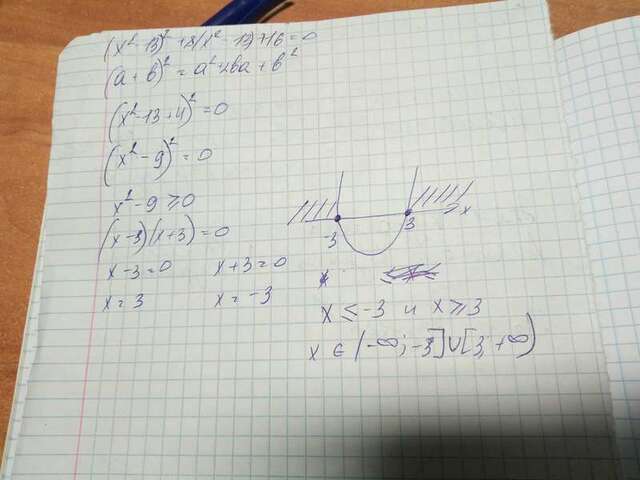 (x²-13)²+8(x²-13)+16=0
(a+b)²=a²+2ba+b²
(x²-13+4)²=0
(x²-9)²=0
x²-9≥0
(x-3)(x+3)=0
x-3=0 x+3=0
x=3 x=-3
-3 3 x
x≤-3 и x≥3
x∈(-∞;-3]∪[3;+∞)